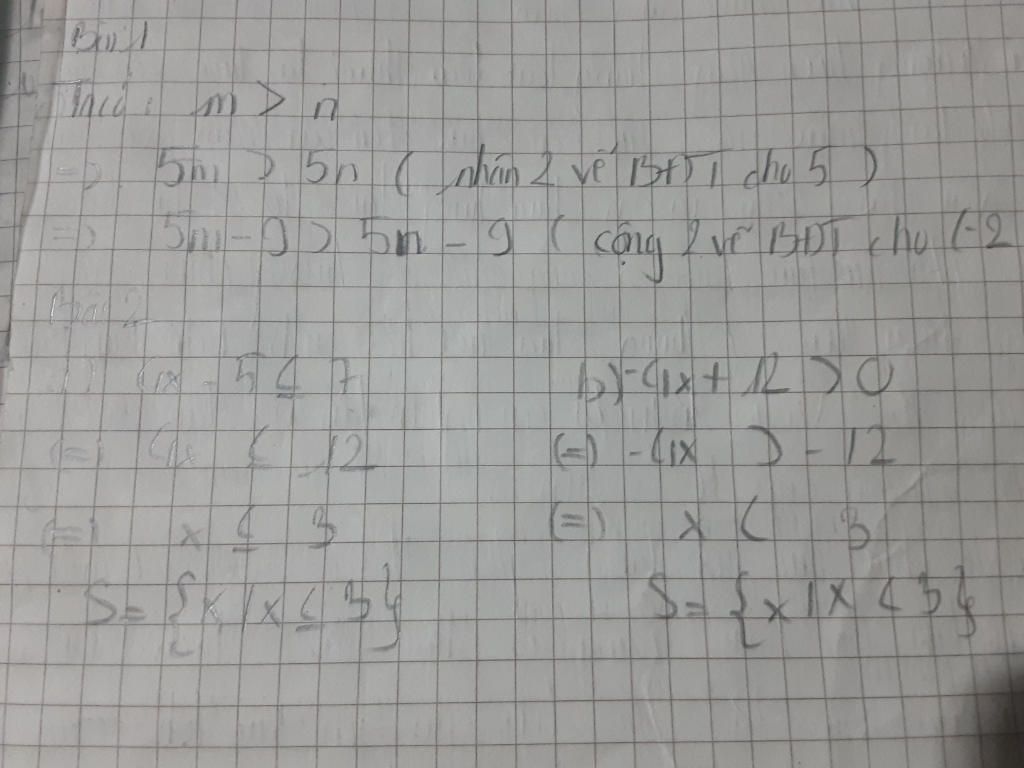 Bài 1
Ta có: m > n
=> 5m > 5n ( nhân 2 vế BĐT cho 5 )
=> 5m - 9 > 5n - 9 ( cộng 2 vế BĐT cho (-2
Bài 2
4x - 5 ≤ 7
(=) 4x ≤ 12
(=) x ≤ 3
S = {x / x ≤ 3}
b) -4x + 12 > 0
(=) -4x > -12
(=) x < 3
S = {x / x < 3}